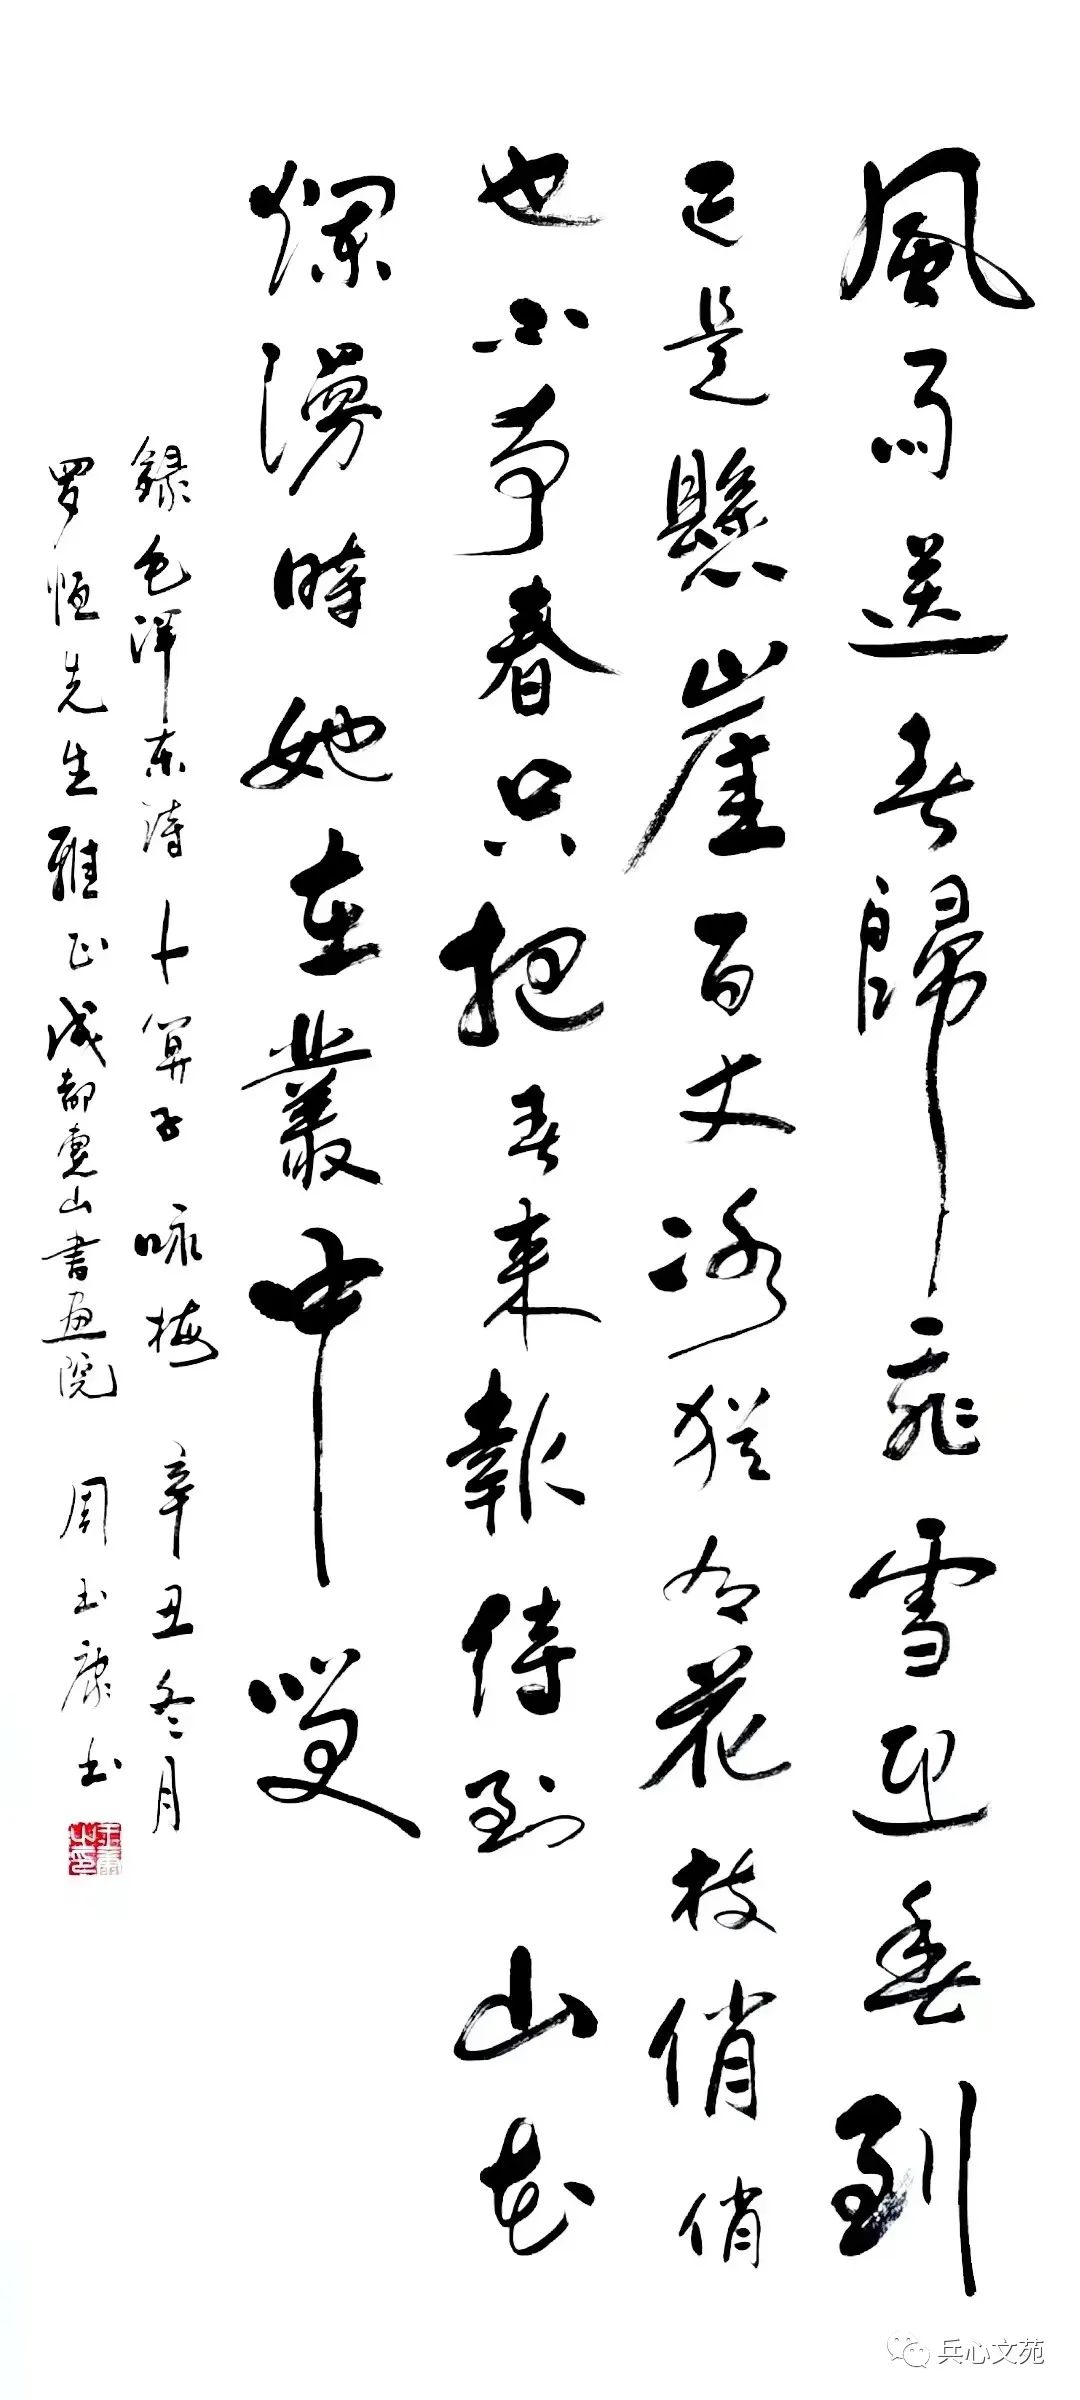 風雨送春歸飛雪迎春到
已是懸崖百丈冰猶有花枝俏俏
也不争春只把春來報待到山花
爛漫時她在叢中笑
錄毛澤东詩卜算子 咏梅 辛丑冬月
罗恒先生雅正成都山書画院 周玉康书
玉康之印
兵心文苑